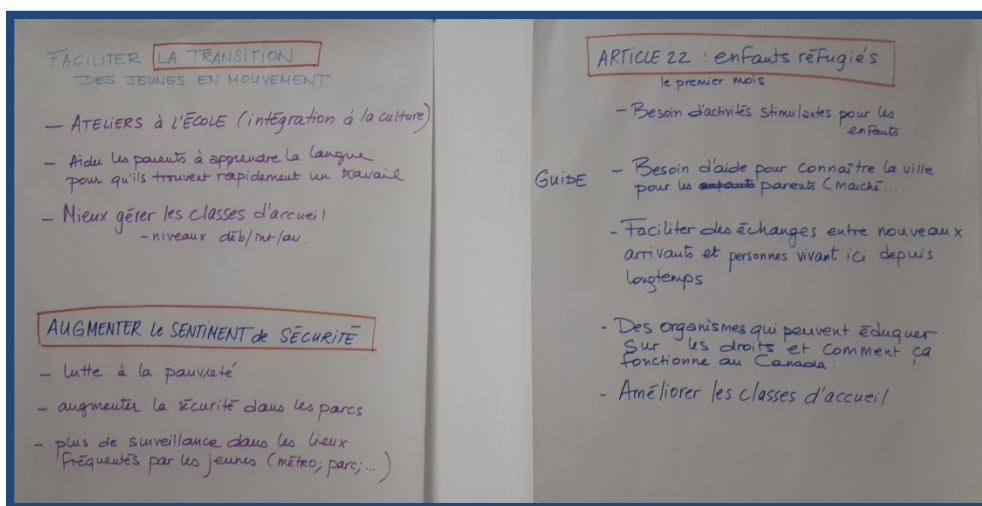 FACILITER LA TRANSITION
DES JEUNES EN MOUVEMENT
— ATELIERS à l'ÉCOLE (intégration à la culture)
— Aider les parents à apprendre la langue
pour qu'ils trouvent rapidement un travail
— Mieux gérer les classes d'accueil
- niveaux déb/int/av.
AUGMENTER le SENTIMENT de SÉCURITÉ
— lutte à la pauvreté
— augmenter la sécurité dans les parcs
— plus de surveillance dans les lieux
fréquentés par les jeunes (métro; parc;...)
ARTICLE 22 : enfants réfugiés
le premier mois
- Besoin d'activités stimulantes pour les
enfants
GUIDE - Besoin d'aide pour connaître la ville
pour les enfants parents (marché....
- Faciliter des échanges entre nouveaux
arrivants et personnes vivant ici depuis
longtemps
- Des organismes qui peuvent éduquer
sur les droits et comment ça
fonctionne au Canada.
- Améliorer les classes d'accueil